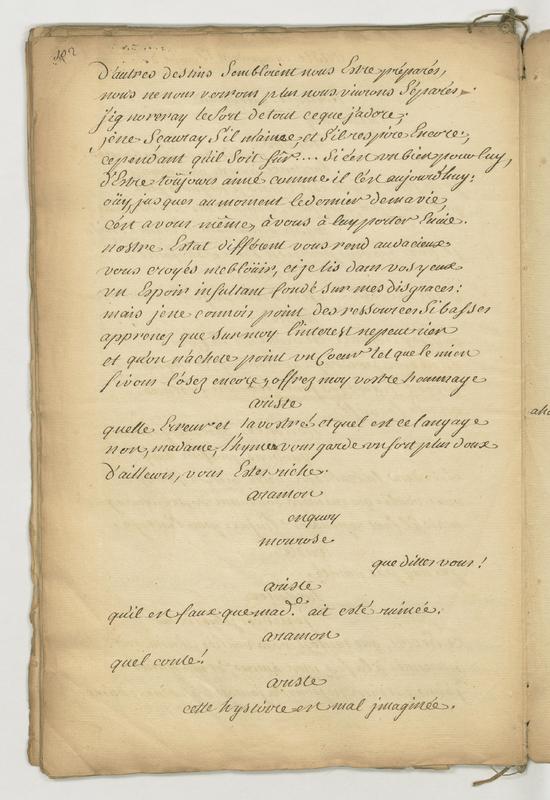 D'autres destins Sembloient nous Estre préparés,
nous ne nous verrons plus nous vivrons Séparés.
j'ignoreray le sort de tout ce que j'adore;
je ne Scauray S'il m'aimee, et S'il respire Encore;
cependant qu'il Soit sûr.... Si c'est un bien pour luy,
D'Estre toüjours aimé comme il l'est aujourd'huy:
oüy, jusques au moment le dernier de ma vie,
c'est a vous même, à vous à luy porter Envie.
nostre Estat different vous rend audacieux
vous croyés m'eblöüir, et je lis dans vos yeux
un Espoir insultant fondé sur mes disgraces:
mais je ne connois point des ressources Si basses
apprenez que sur moy l'interest ne peut rien
et qu'on n'achete point un Coeur tel que le mien
si vous l'osez encore, offrez moy vostre hommage
ariste
quelle Erreur est la vostre et quel est ce langage
non, madame, l'hymen vous garde un sort plus doux
D'ailleurs, vous Estes riche.
aramon
en quoy
monrose
que dittes vous!
ariste
qu'il est faux que mad.e ait esté ruinée.
aramon
quel conte!
ariste
cette hystoire est mal jmaginée.